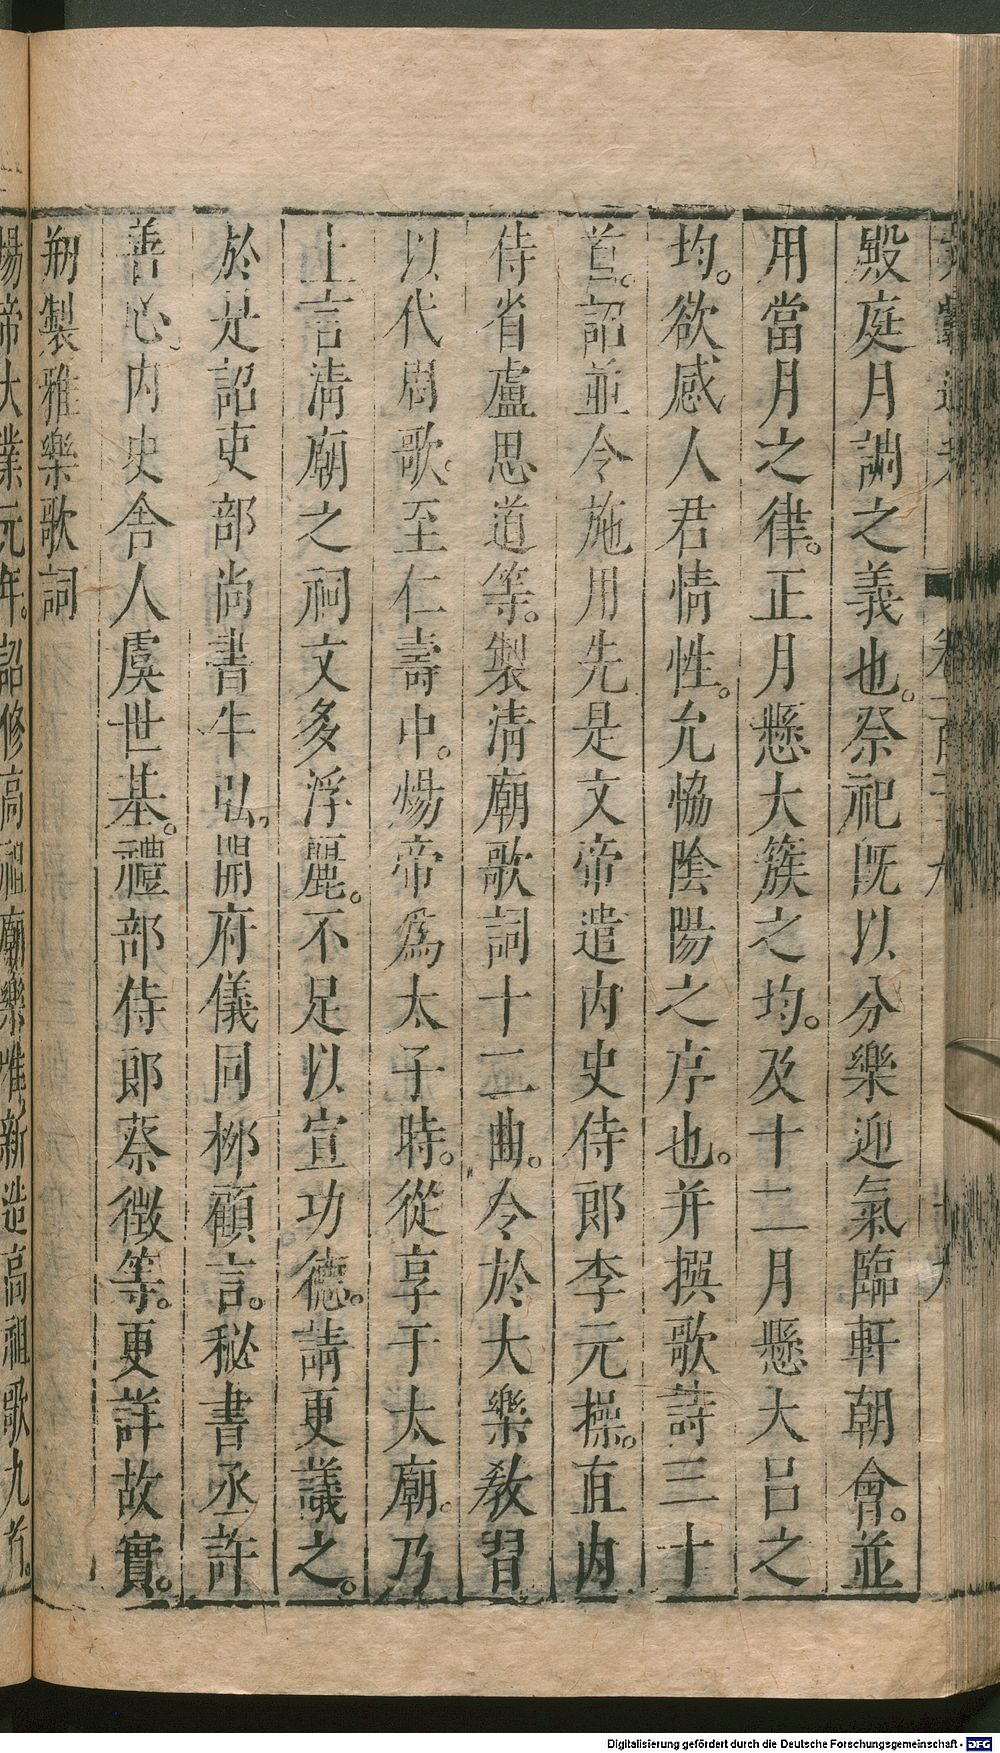 殿庭月調之義也。祭祀既以分樂迎氣臨軒朝會。並
用當月之律。正月懸大簇之均。及十二月懸大呂之
均。欲感人君情性。允恊陰陽之序也。并撰歌詩三十
首。詔並令施用先是文帝遣内史侍郎李元操。直内
侍省盧思道等。製淸廟歌詞十二曲。令於大樂敎習
以代周歌。至仁壽中。煬帝爲太子時。從享于太廟。乃
上言淸廟之祠文多浮麗。不足以宣功德。請更議之。
於是詔吏部尚書牛弘。開府儀同柳顧言。秘書丞許
善心。内史舍人虞世基。禮部侍郎蔡徵等。更詳故實。
刱製雅樂歌詞
煬帝大業元年。詔修高祖廟樂惟新造高祖歌九首。
Digitalisierung gefördert durch die Deutsche Forschungsgemeinschaft - DFG